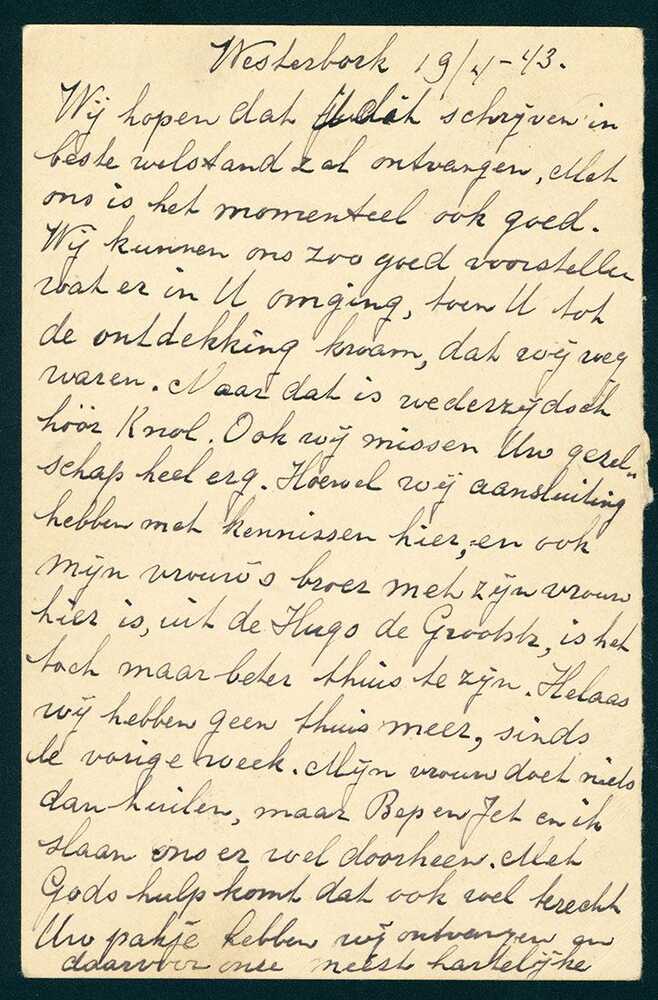 Westerbork 19/4-43.
Wij hopen dat U dit schrijven in
beste welstand zal ontvangen, Met
ons is het momenteel ook goed.
Wij kunnen ons zoo goed voorstellen
wat er in U omging, toen U tot
de ontdekking kwam, dat wij weg
waren. Maar dat is wederzijdsch
hoor Knol. Ook wij missen Uw gezel„
schap heel erg. Hoewel wij aansluiting
hebben met kennissen hier, en ook
mijn vrouw's broer met zijn vrouw
hier is, uit de Hugo de Grootstr, is het
toch maar beter thuis te zijn. Helaas
wij hebben geen thuis meer, sinds
de vorige week. Mijn vrouw doet niets
dan huilen, maar Bep en Jet en ik
slaan ons er wel doorheen. Met
Gods hulp komt dat ook wel terecht
Uw pakje hebben wij ontvangen en
daarvoor onze meest hartelijke